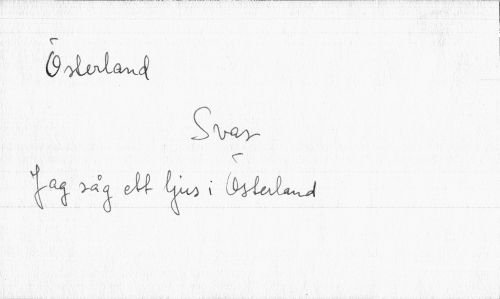 Österland
Svar
Jag såg ett ljus i Österland